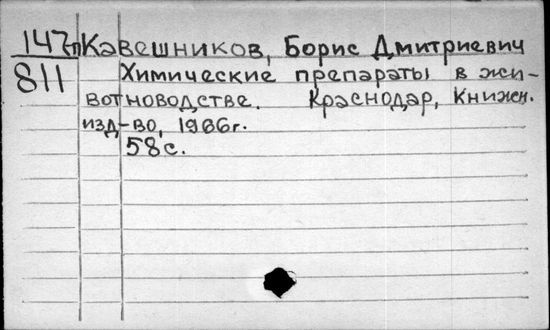 147п Кавешников, Борис Дмитриевич
811 Химические препараты в жи-
вотноводстве. Краснодар, Книжн.
изд-во, 1966г.
58с.